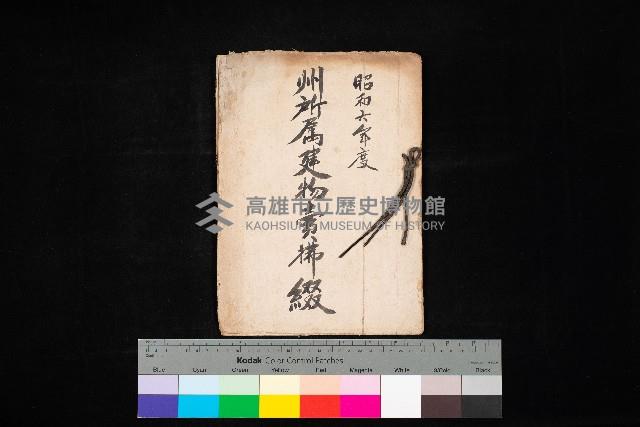 昭和六年度
州所属建物賣拂綴
高雄市立歷史博物館
KAOHSIUNG MUSEUM OF HISTORY
Kodak Color Control Patches
Blue Cyan Green Yellow Red Magenta White 3/Color Black